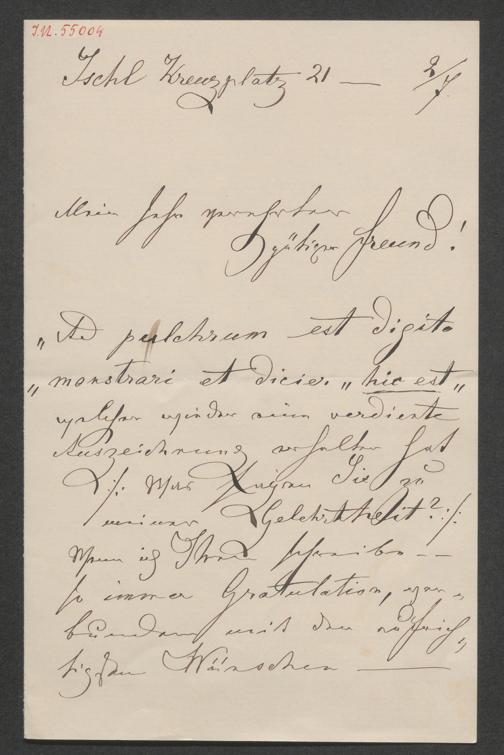 I.N. 55004
Ischl Kreuzplatz 21 — 2/7
Mein sehr verehrter
gütiger Freund!
„Ad pulchrum est digito
„monstrari et dicier. „hic est„
welcher wieder eine verdiente
Auszeichnung erhalten hat
/: Was sagen Sie zu
meiner Gelehrtheit? :/
Wenn ich Ihnen schreibe --
so immer Gratulation, ver-
bunden mit den aufrich„
tigsten Wünschen —